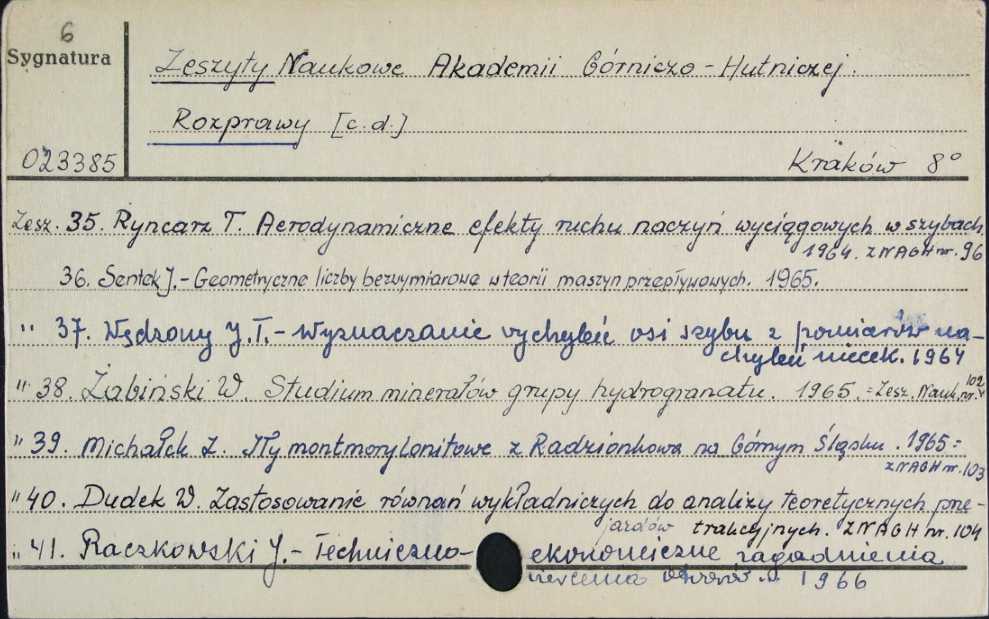 6
Sygnatura
Zeszyty Naukowe Akademii Górniczo-Hutniczej.
Rozprawy [c.d.]
023385
Kraków 8°
Zesz. 35. Ryncarz T. Aerodynamiczne efekty ruchu naczyń wyciągowych w szybach
1964. ZNAGH nr. 96
36. Sentek J.- Geometryczne liczby bezwymiarowe w teorii maszyn przepływowych. 1965.
" 37. Wędzony J.T.- Wyznaczanie wychyleń osi szybu z pomiarów na-
chyleń niecek. 1964
" 38. Żabiński W. Studium minerałów grupy hydrogranatu. 1965. = Zesz. Nauk. nr. 102
" 39. Michałek Z. Iły montmorylonitowe z Radzionkowa na Górnym Śląsku. 1965 =
ZNAGH nr. 103
" 40. Dudek W. Zastosowanie równań wykładniczych do analizy teoretycznych prze-
jazdów trakcyjnych. ZNAGH nr. 104
" 41. Raczkowski J.- Techniczno-ekonomiczne zagadnienia
wiercenia otworów 1966